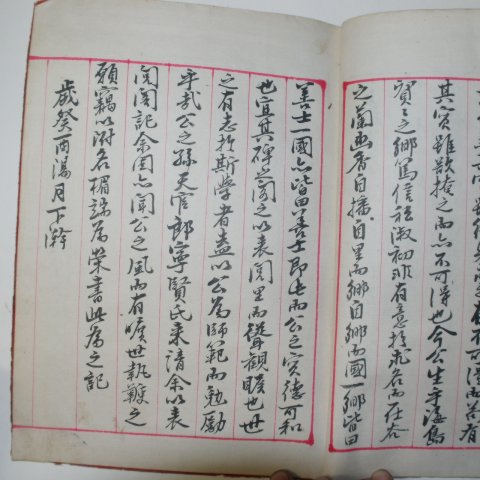 其實雖欲掩之而亦不可得也今公生乎海島
寶之鄉篤信私淑初非有意於求名而在谷
之蘭幽香自播自里而鄉自鄉而國一鄉皆曰
善士一國亦皆曰善士即此而公之實德可知
也宜其碑而銘之以表閭里而聳觀瞻也世
之有志於斯學者盍以公爲師範而勉勵
乎哉公之孫天官郎寧賢氏來請余以表
閭閣記余固亦聞公之風而有曠世執鞭之
願竊以附名楣端爲榮書此爲之記
歲癸酉陽月下澣